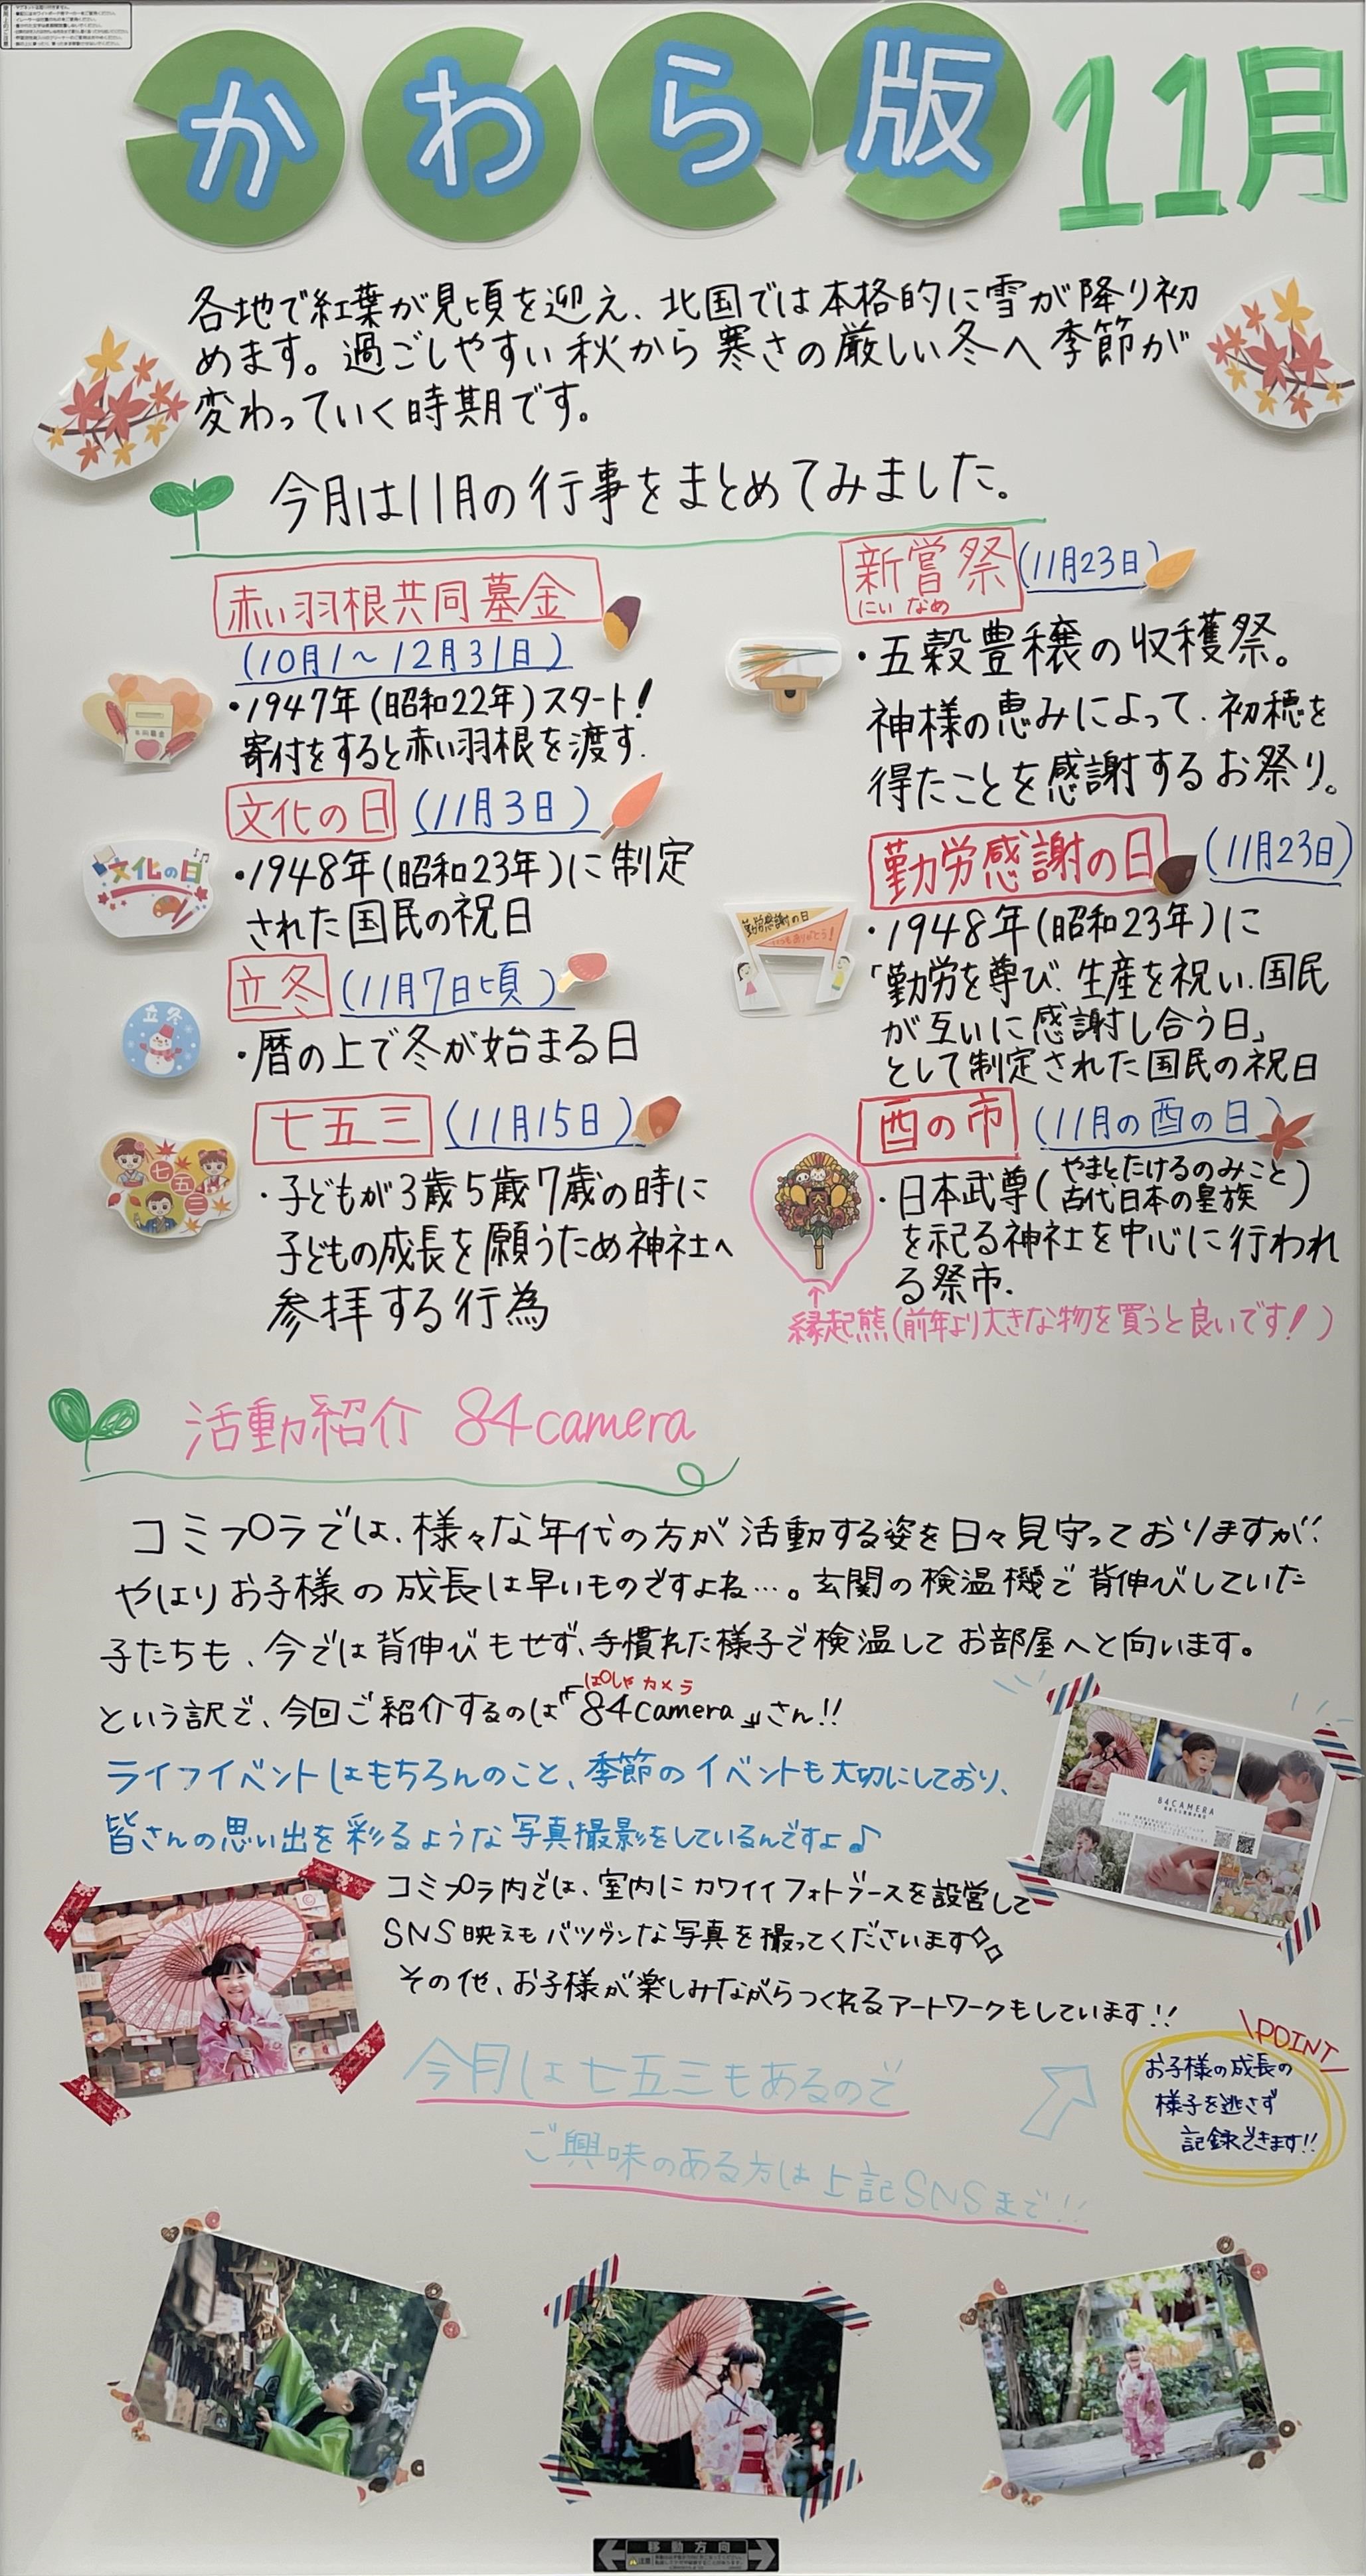 かわら版 11月
各地で紅葉が見頃を迎え、北国では本格的に雪が降り初
めます。過ごしやすい秋から寒さの厳しい冬へ季節が
変わっていく時期です。
今月は11月の行事をまとめてみました。
赤い羽根共同墓金
(10月1〜12月31日)
共同募金
・1947年(昭和22年)スタート!
寄付をすると赤い羽根を渡す.
文化の日 (11月3日)
文化の日
・1948年(昭和23年)に制定
された国民の祝日
立冬 (11月7日頃)
立冬
・暦の上で冬が始まる日
七五三 (11月15日)
七五三
・子どもが3歳5歳7歳の時に
子どもの成長を願うため神社へ
参拝する行為
新嘗祭 (11月23日)
にいなめ
・五穀豊穣の収穫祭。
神様の恵みによって、初穂を
得たことを感謝するお祭り。
勤労感謝の日 (11月23日)
勤労感謝の日
いつもありがとう!
・1948年(昭和23年)に
「勤労を尊び、生産を祝い、国民
が互いに感謝し合う日」
として制定された国民の祝日
酉の市 (11月の酉の日)
・日本武尊(やまとたけるのみこと
古代日本の皇族)
を祀る神社を中心に行われ
る祭市.
↑
縁起熊(前年より大きな物を買うと良いです!)
活動紹介 84camera
コミプラでは、様々な年代の方が活動する姿を日々見守っておりますが、
やはりお子様の成長は早いものですよね…。玄関の検温機で背伸びしていた
子たちも、今では背伸びもせず、手慣れた様子で検温してお部屋へと向います。
ぱしゃカメラ
という訳で、今回ご紹介するのは『84camera』さん!!
ライフイベントはもちろんのこと、季節のイベントも大切にしており、
皆さんの思い出を彩るような写真撮影をしているんですよ♪
84CAMERA
コミプラ内では、室内にカワイイフォトブースを設営して
SNS映えもバツグンな写真を撮ってくださいます
その他、お子様が楽しみながらつくれるアートワークもしています!!
POINT
お子様の成長の
様子を逃さず
記録できます!!
今月は七五三もあるので
ご興味のある方は上記SNSまで!!
移動方向